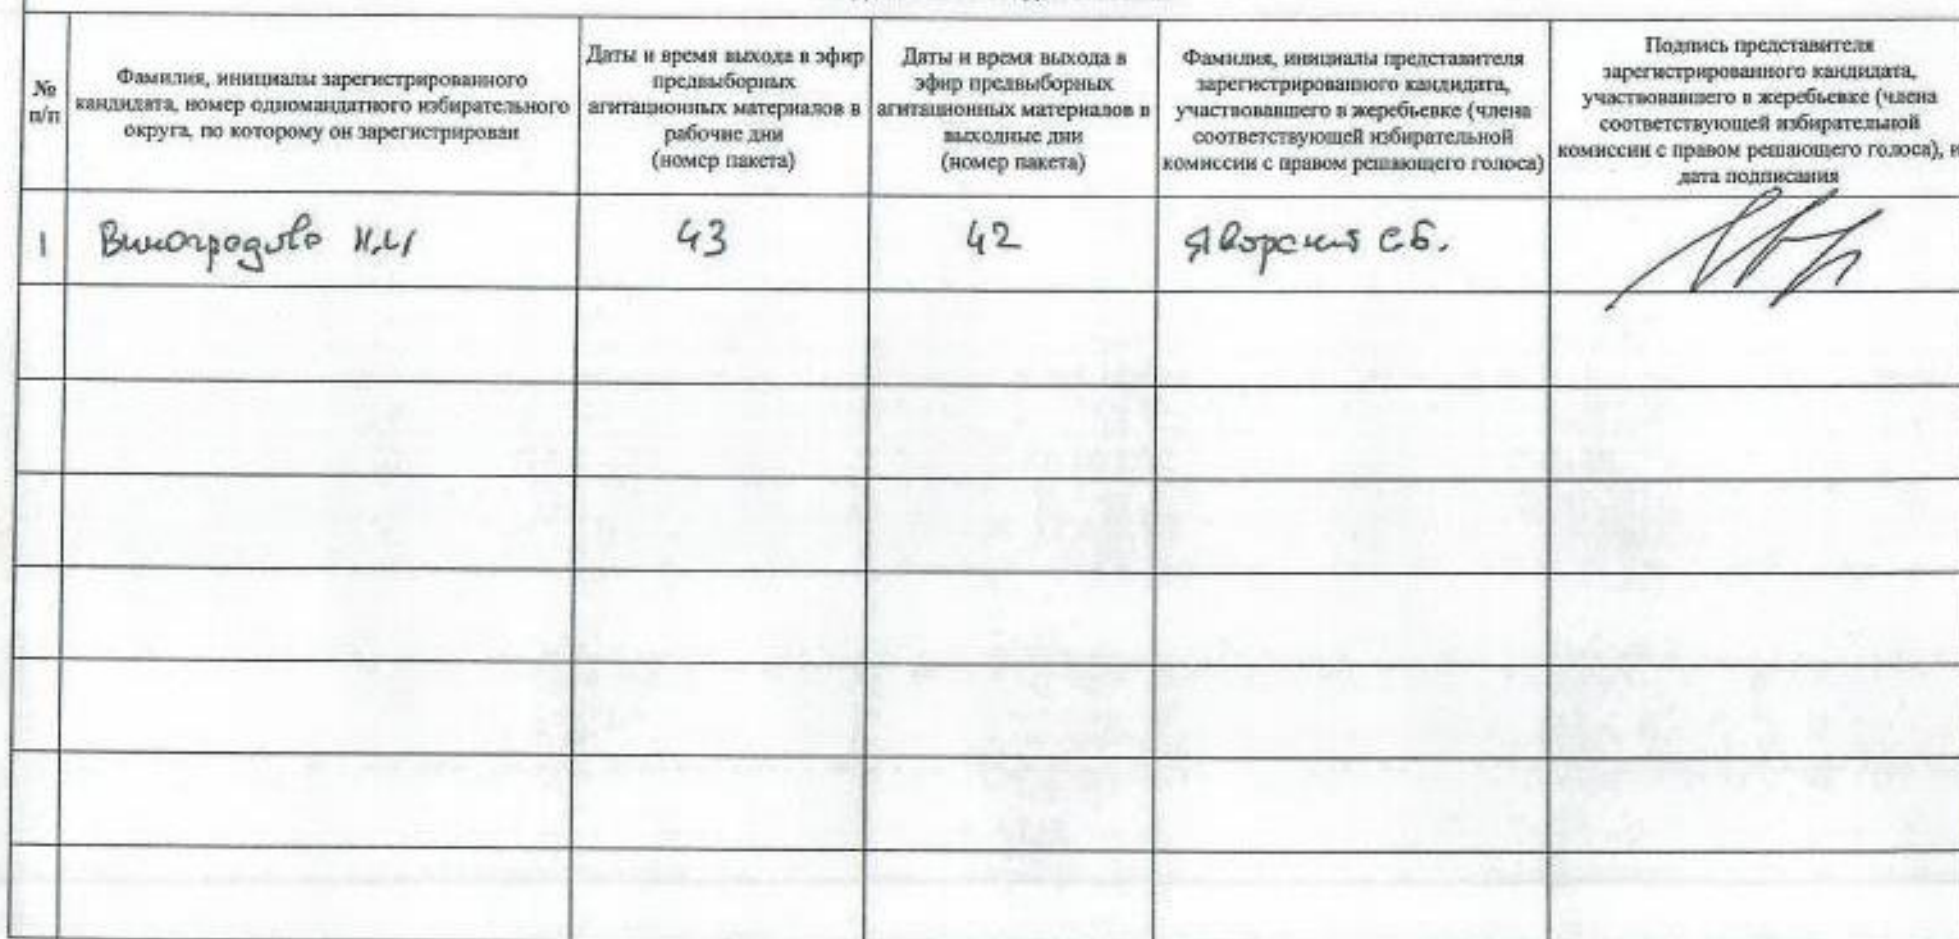 №
п/п
Фамилия, инициалы зарегистрированного
кандидата, номер одномандатного избирательного
округа, по которому он зарегистрирован
Даты и время выхода в эфир
предвыборных
агитационных материалов в
рабочие дни
(номер пакета)
Даты и время выхода в
эфир предвыборных
агитационных материалов в
выходные дни
(номер пакета)
Фамилия, инициалы представителя
зарегистрированного кандидата,
участвовавшего в жеребьевке (члена
соответствующей избирательной
комиссии с правом решающего голоса)
Подпись представителя
зарегистрированного кандидата,
участвовавшего в жеребьевке (члена
соответствующей избирательной
комиссии с правом решающего голоса), и
дата подписания
1
Виноградова Н.И
43
42
Яворский С.Б.